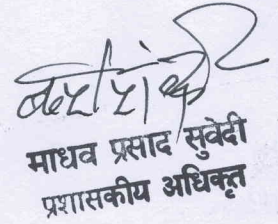 माधव प्रसाद सुवेदी
प्रशासकीय अधिकृत